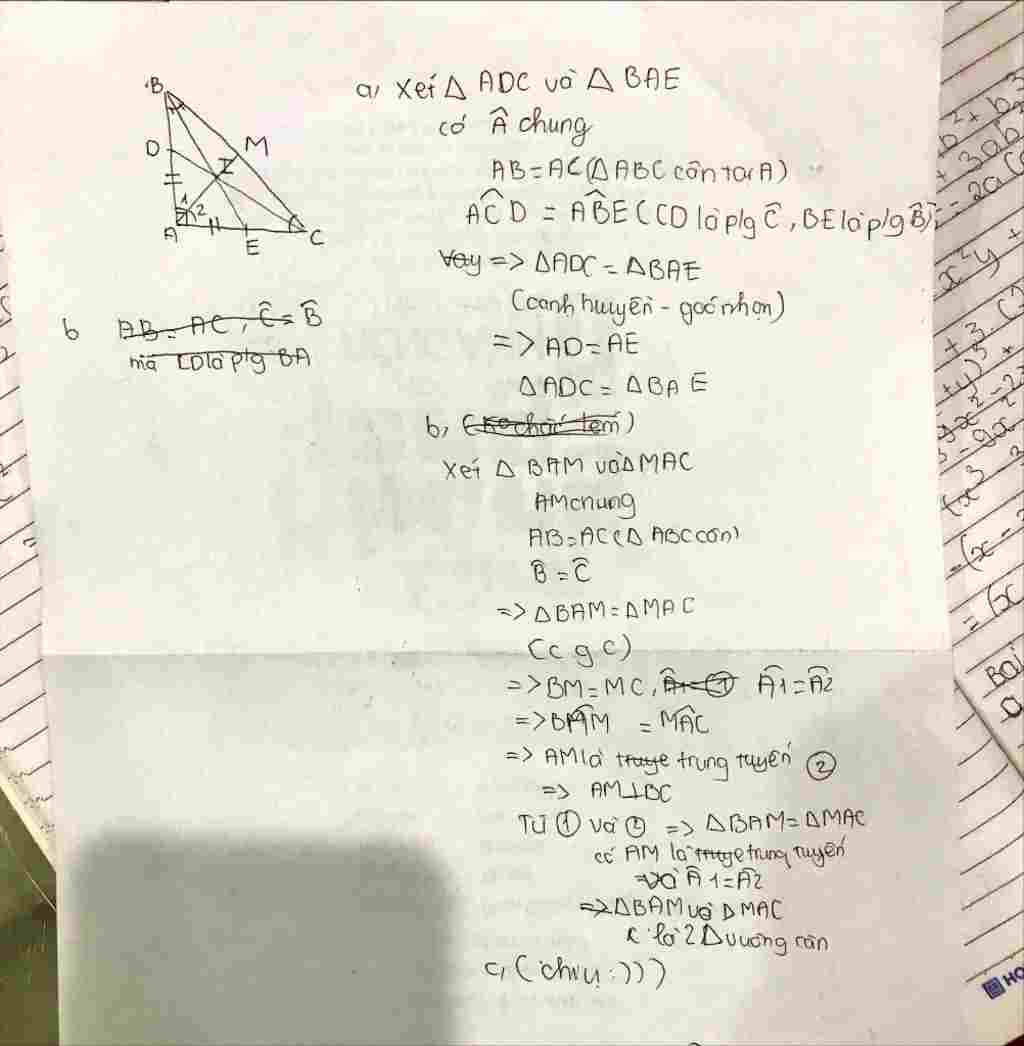 B
D
I
M
1
2
A
E
C
a, Xét △ ADC và △ BAE
có Â chung
AB = AC (△ ABC cân tại A)
AĈD = AB̂E (CD là p/g Ĉ, BE là p/g B̂)
Vay => △ADC = △BAE
(cạnh huyền - góc nhọn)
=> AD = AE
△ADC = △BAE
b AB = AC, Ĉ = B̂
mà CD là p/g BA
b,
Xét △ BAM và △MAC
AM chung
AB = AC (△ ABC cân)
B̂ = Ĉ
=> △BAM = △MAC
(c g c)
=> BM = MC, Â1 = Â2
=> BÂM = MÂC
=> AM là truye trung tuyến ②
=> AM⊥BC
Từ ① và ② => △BAM = △MAC
có AM là truye trung tuyến
và Â1 = Â2
=> △BAM và △MAC
là 2 △ vuông cân
c, (chịu :)))
x²y +
Bài
HO